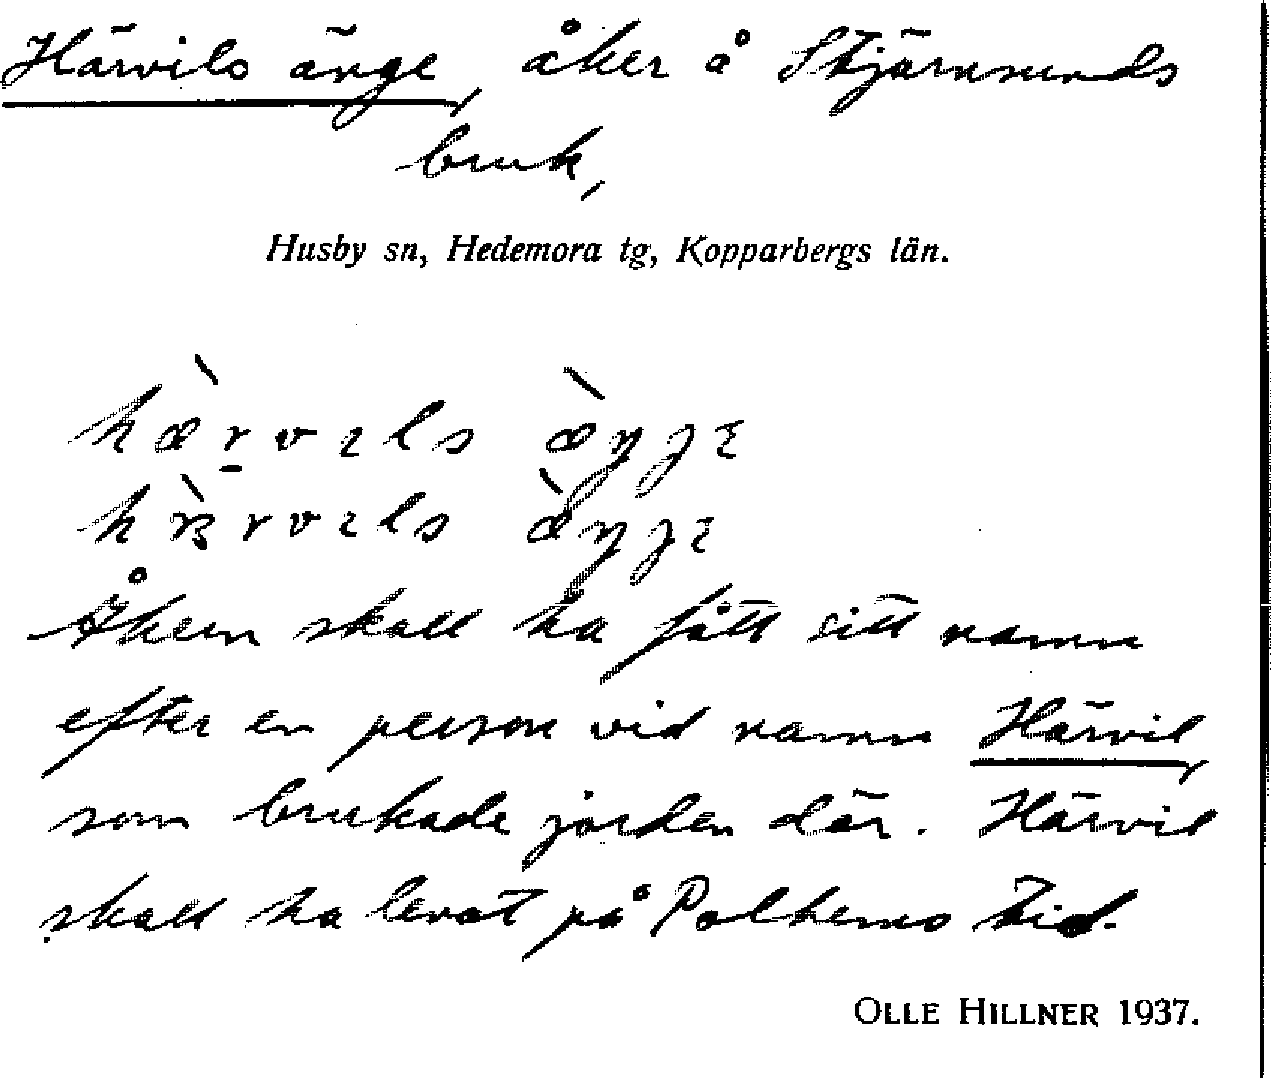 Härvils änge, åker å Stjärnsunds
bruk,
Husby sn, Hedemora tg, Kopparbergs län.
hæ̀rvɩls æ̀ŋgɛ
rvɩls æ̀ŋgɛ
Åkern skall ha fått sitt namn
efter en person vid namn Härvil,
som brukade jorden där. Härvil
skall ha levat på Polhems tid.
OLLE HILLNER 1937.